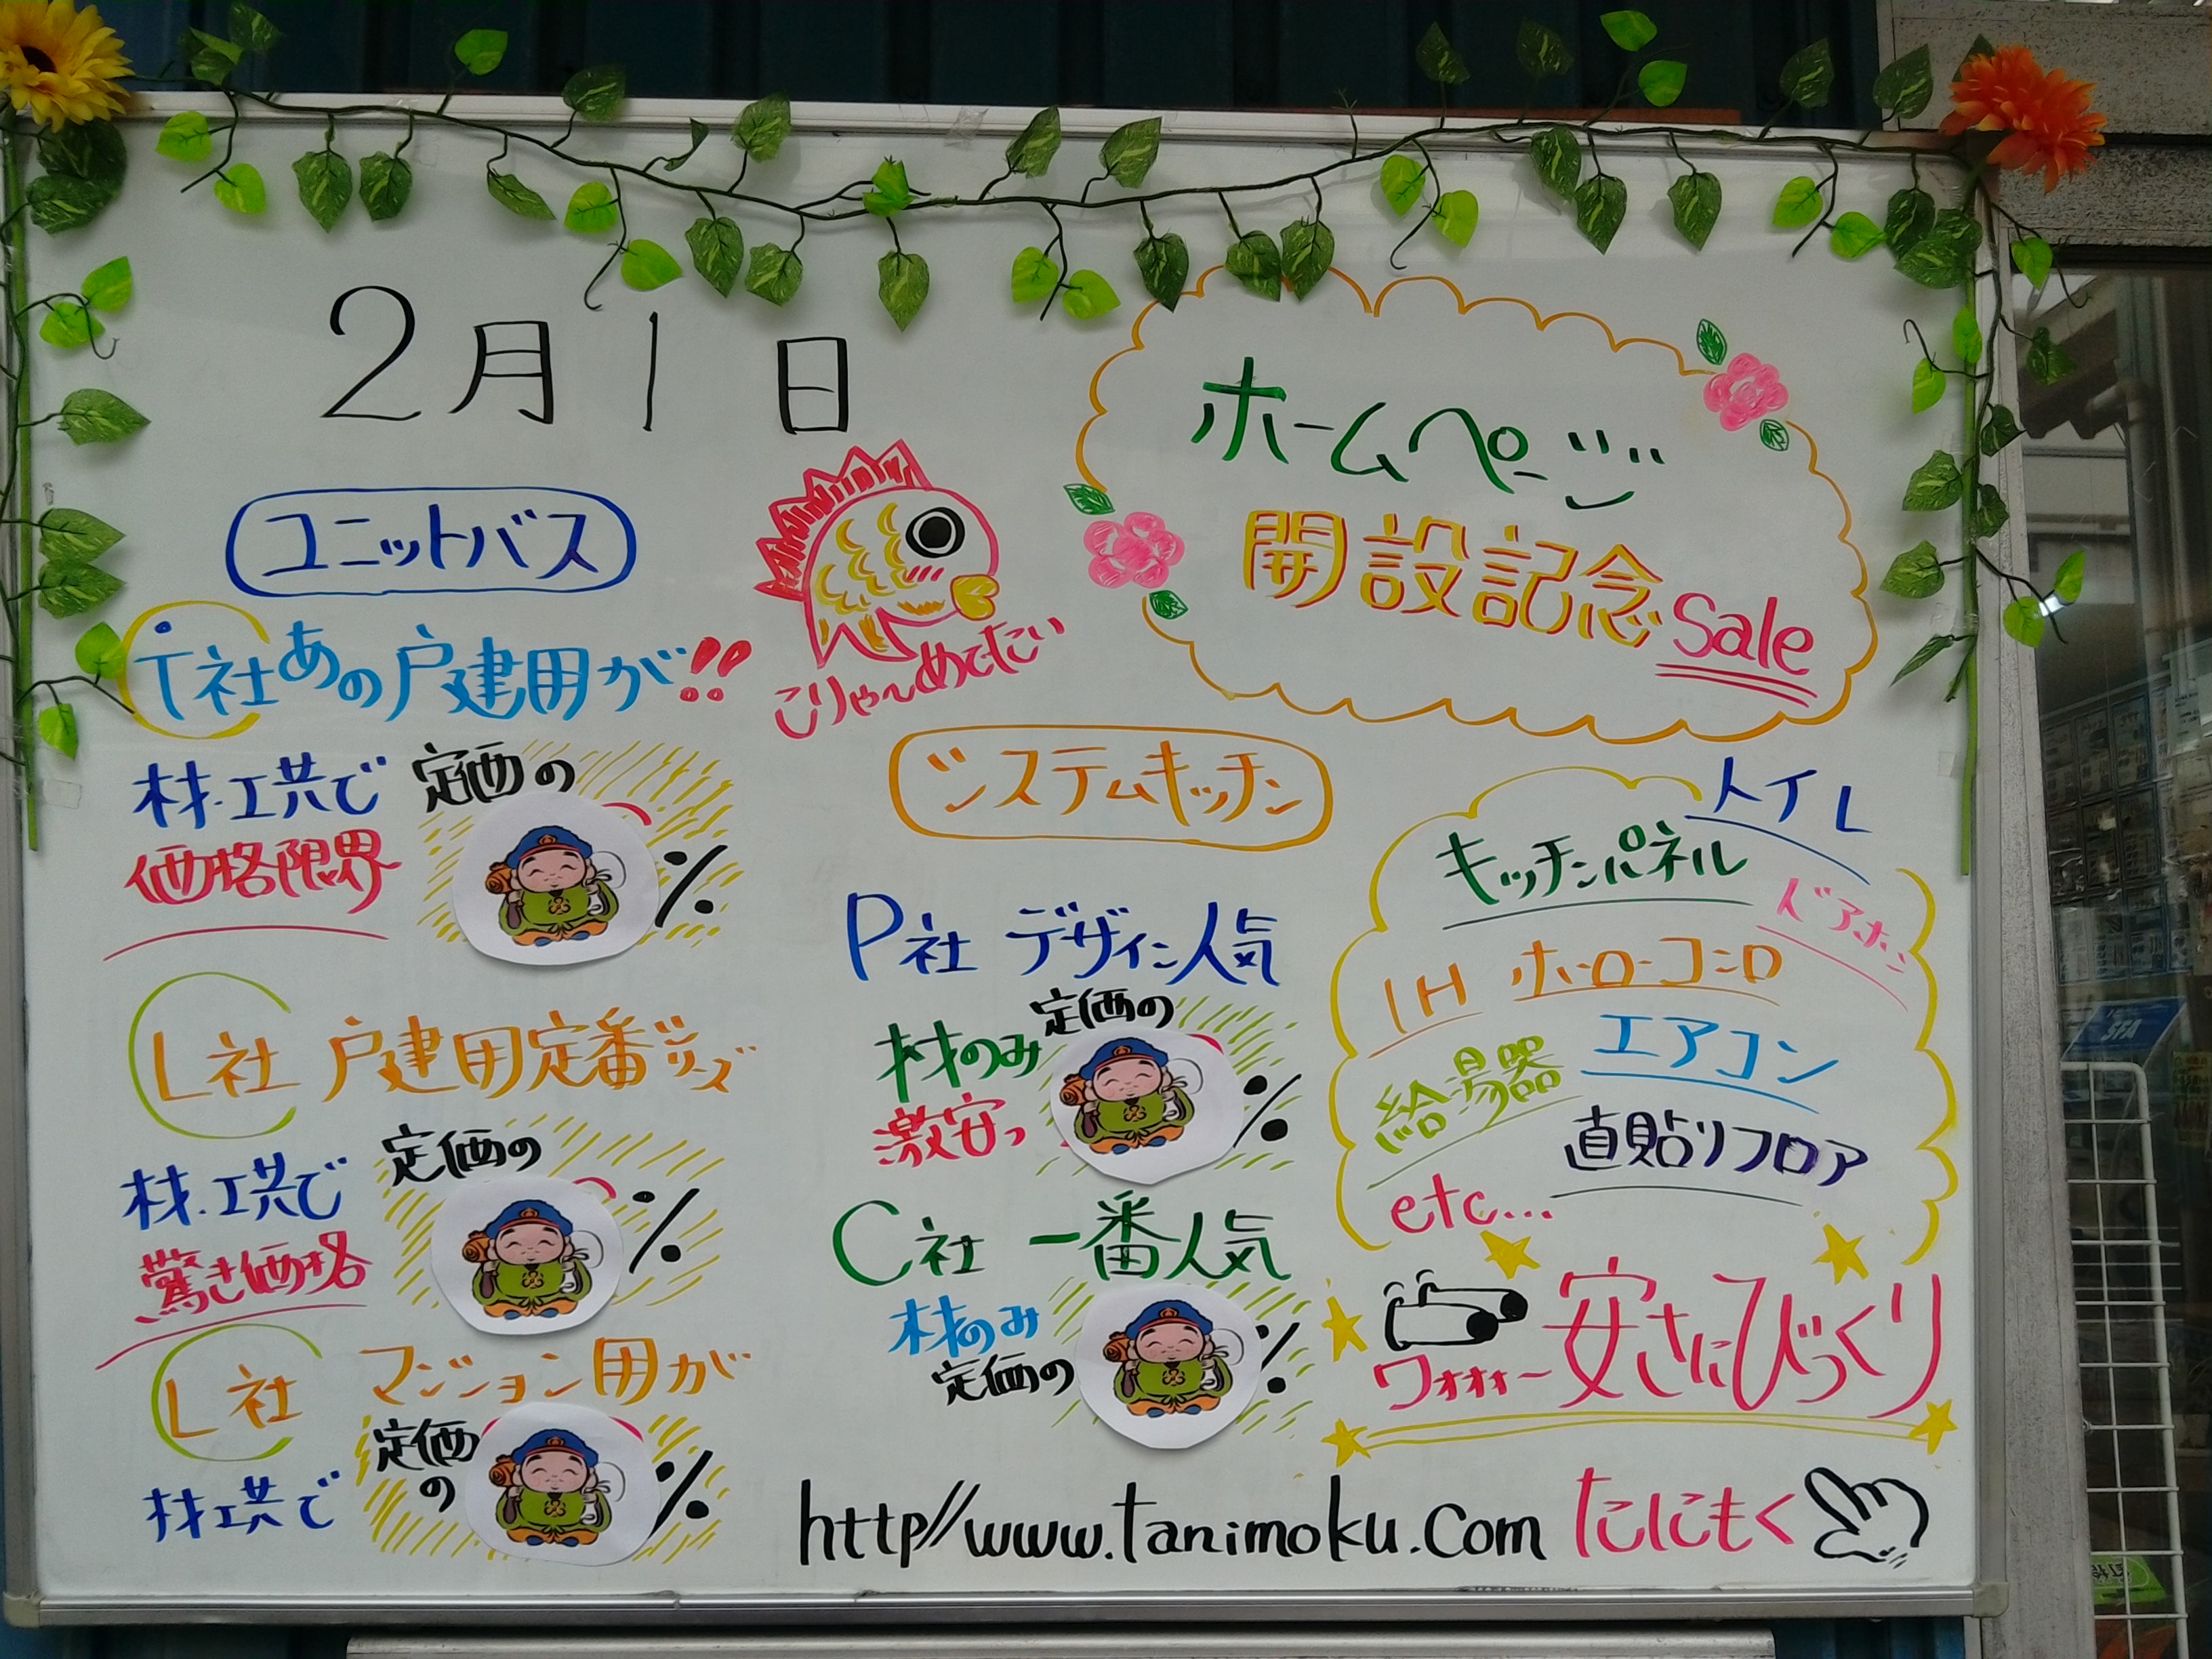 2月1日
ホームページ
開設記念Sale
こりゃ〜めでたい
ユニットバス
T社あの戸建用が!!
材・工共で
価格限界
定価の
%
L社 戸建用定番シリーズ
材・工共で
驚き価格
定価の
%
L社 マンション用が
材工共で
定価
の
%
システムキッチン
P社 デザイン人気
材のみ
激安っ
定価の
%
C社 一番人気
材のみ
定価の
%
トイレ
キッチンパネル
ドアホン
IH ホーローコンロ
給湯器
エアコン
直貼りフロア
etc...
ワォォォー安さにびっくり
http//www.tanimoku.com たにもく